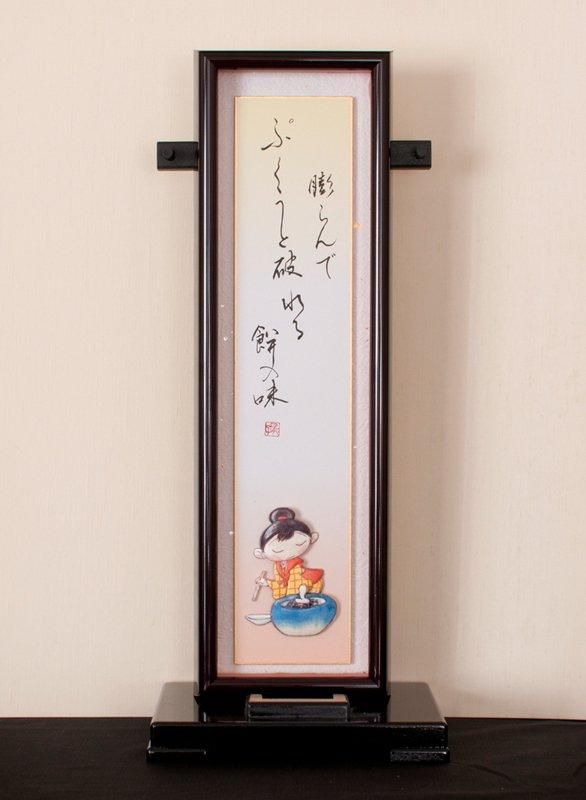 膨らんで
ぷくうと破れる
餅の味